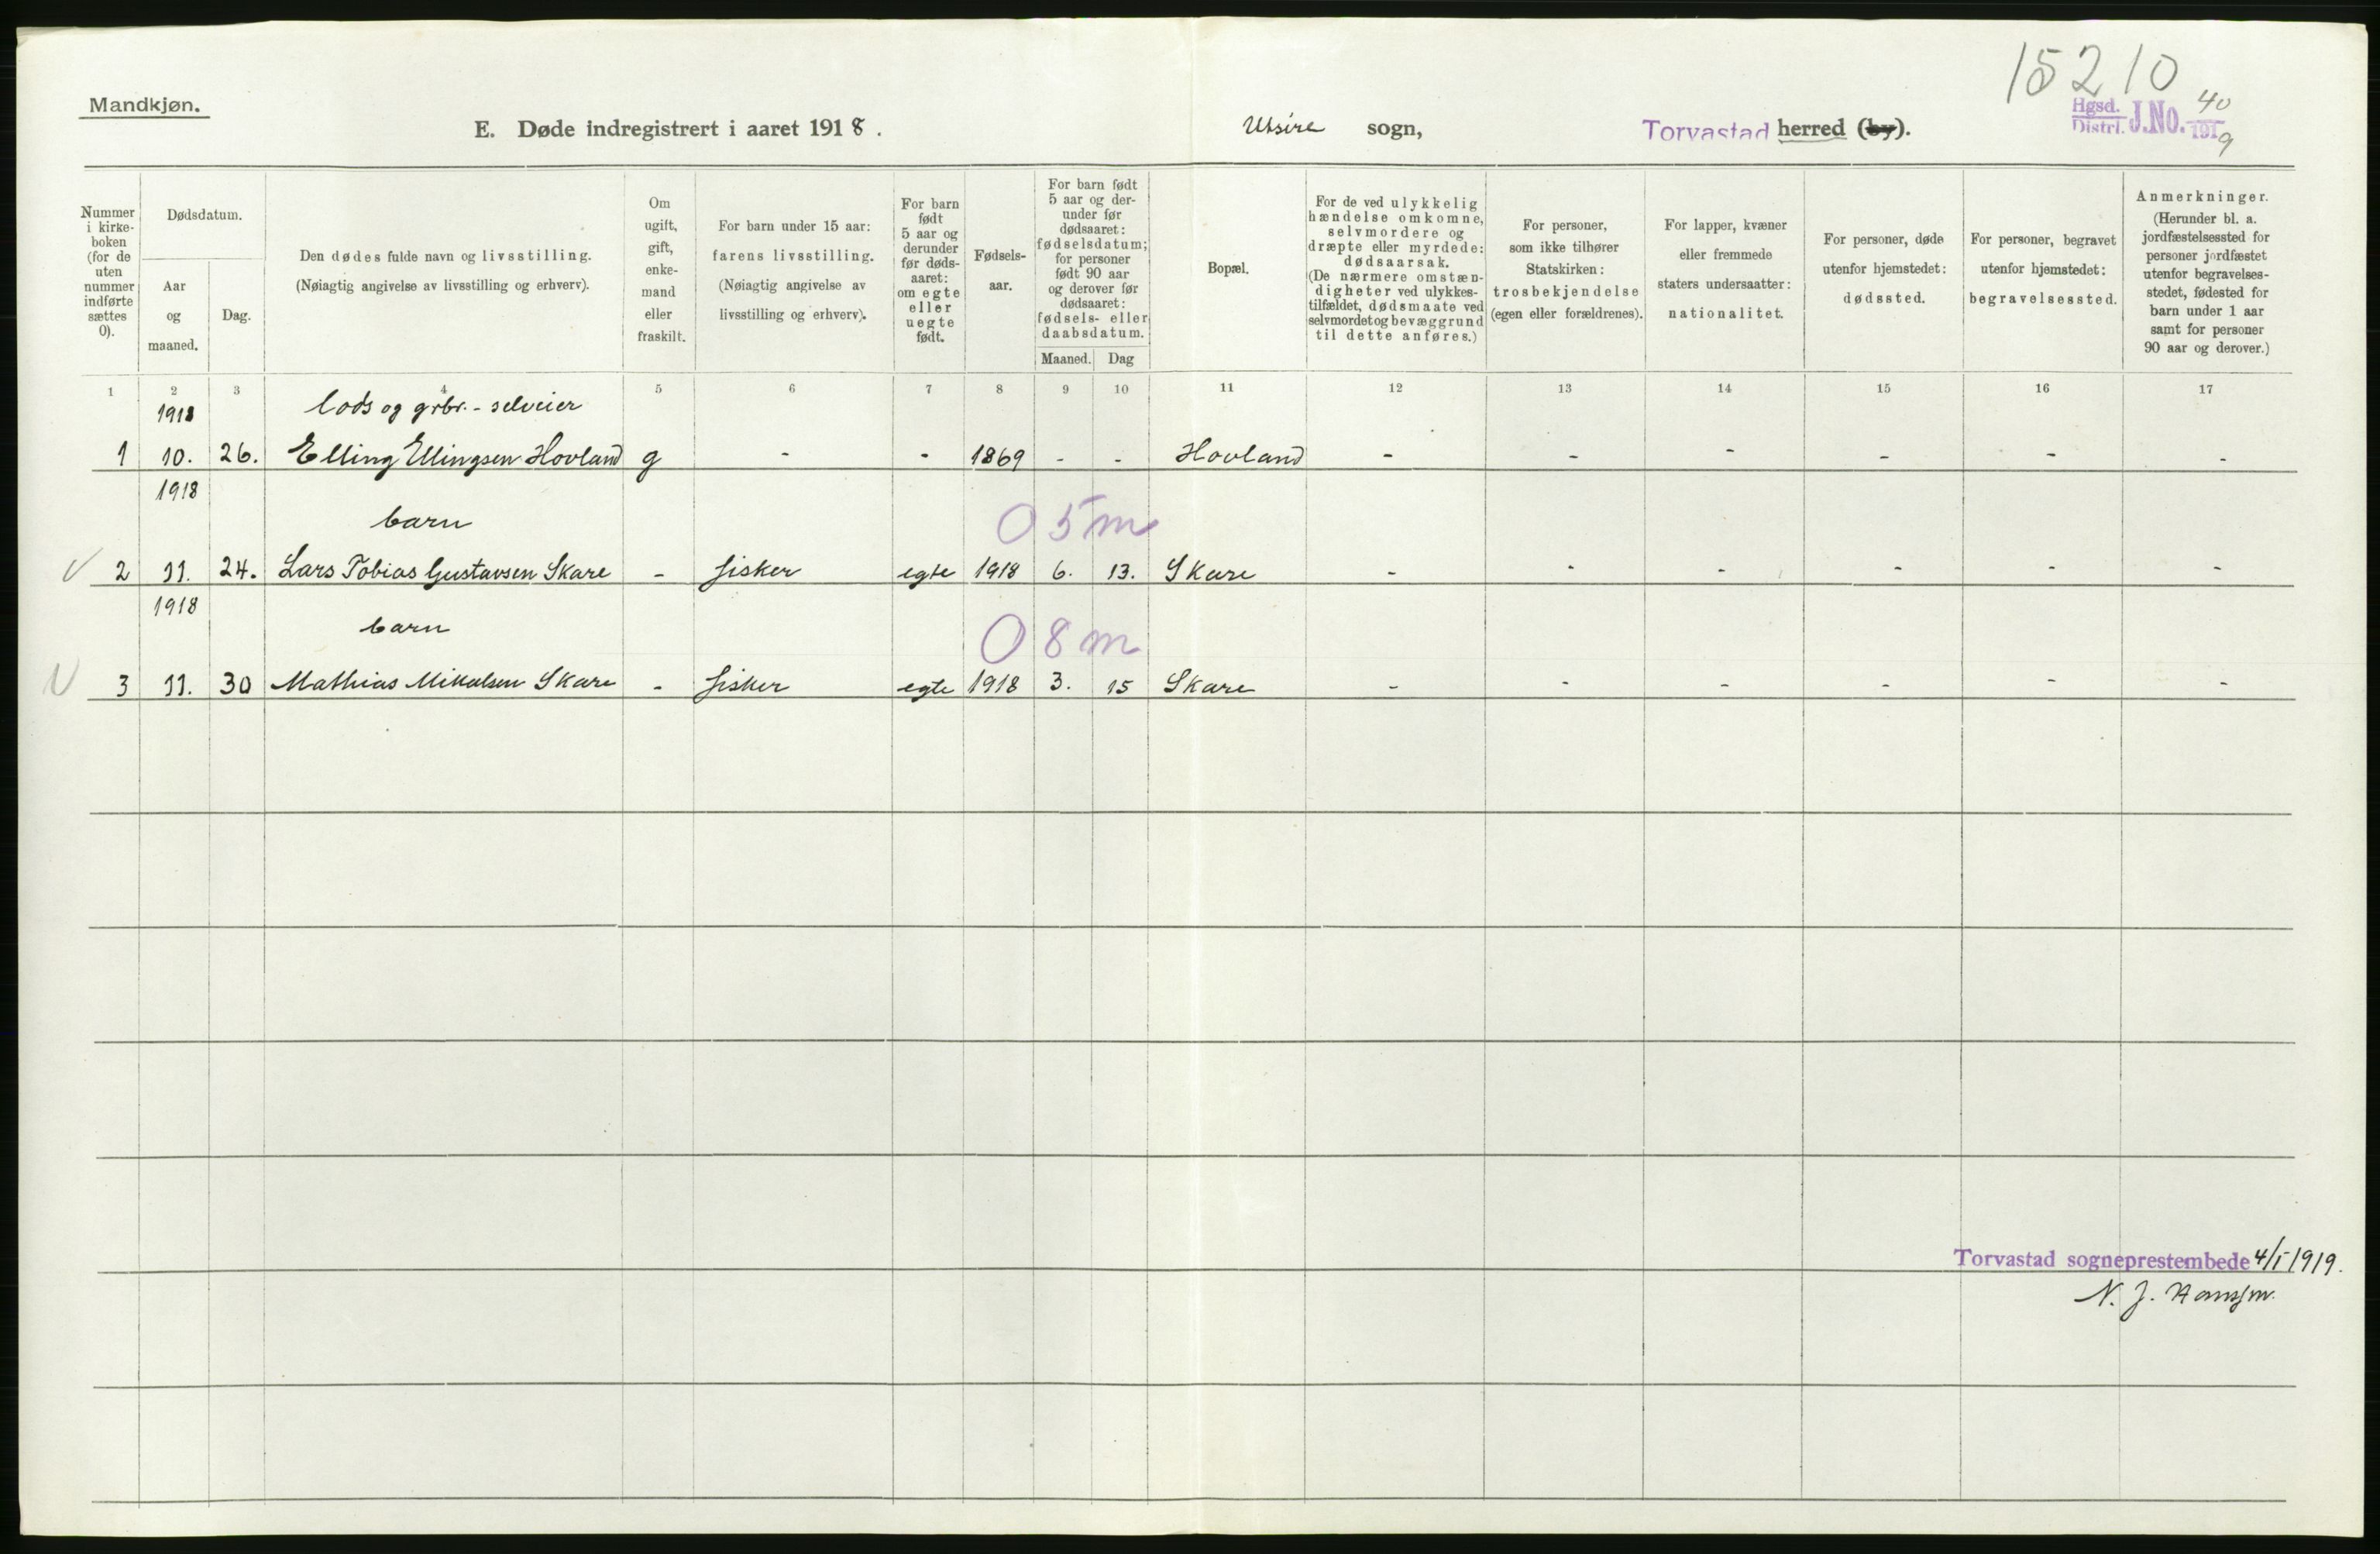 15210
Mandkjøn.
E. Døde indregistrert i aaret 1918.
Utsire sogn,
Torvastad herred (by).
Hgsd. Distri. J.No. 40 1919
Nummer i kirke- boken (for de uten nummer indførte sættes 0).
Dødsdatum.
Aar og maaned.
Dag.
Den dødes fulde navn og livsstilling.
(Nøiagtig angivelse av livsstilling og erhverv).
Om ugift, gift, enke- mand eller fraskilt.
For barn under 15 aar:
farens livsstilling.
(Nøiagtig angivelse av
livsstilling og erhverv).
For barn født 5 aar og derunder før døds- aaret: om egte eller uegte født.
Fødsels- aar.
For barn født 5 aar og der- under før dødsaaret: fødselsdatum; for personer født 90 aar og derover før dødsaaret: fødsels- eller daabsdatum.
Maaned. Dag
Bopæl.
For de ved ulykkelig hændelse omkomne, selvmordere og dræpte eller myrdede: dødsaarsak.
(De nærmere omstæn- digheter ved ulykkes- tilfældet, dødsmaate ved selvmordet og bevæggrund til dette anføres.)
For personer, som ikke tilhører Statskirken: trosbekjendelse (egen eller forældrenes).
For lapper, kvæner eller fremmede staters undersaatter: nationalitet.
For personer, døde utenfor hjemstedet: dødssted.
For personer, begravet utenfor hjemstedet: begravelsessted.
Anmerkninger.
(Herunder bl. a. jordfæstelsessted for personer jordfæstet utenfor begravelses- stedet, fødested for barn under 1 aar samt for personer 90 aar og derover.)
1 2 3 4 5 6 7 8 9 10 11 12 13 14 15 16 17
1918 lods og grbr. - selveier
1 10. 26. Elling Ellingsen Hovland g - - 1869 - - Hovland - - - - - -
1918
barn 0 5 m
2 11. 24. Lars Tobias Gustavsen Skare - fisker egte 1918 6. 13. Skare - - - - - -
1918
barn 0 8 m
3 11. 30 Mathias Mikalsen Skare - fisker egte 1918 3. 15 Skare - - - - - -
Torvastad sogneprestembede 4/1 1919.
N. J.